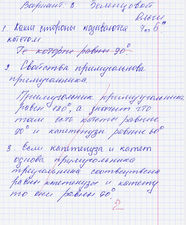 Вариант 3. Зеленцовой
Ольги
7 "б"
1. Какие стороны называются
катетом
Те которые равны 90°
2. Свойства прямоугольного
прямоугольника.
Прямоугольник прямоугольника
равен 180°, а значит что
там есть катет равные
90° и гипотенуза равная 60°
3 если гипотенуза и катет
одного прямоугольника
треугольника соответственно
равен гипотенузе и катету
то они равны 90°
2